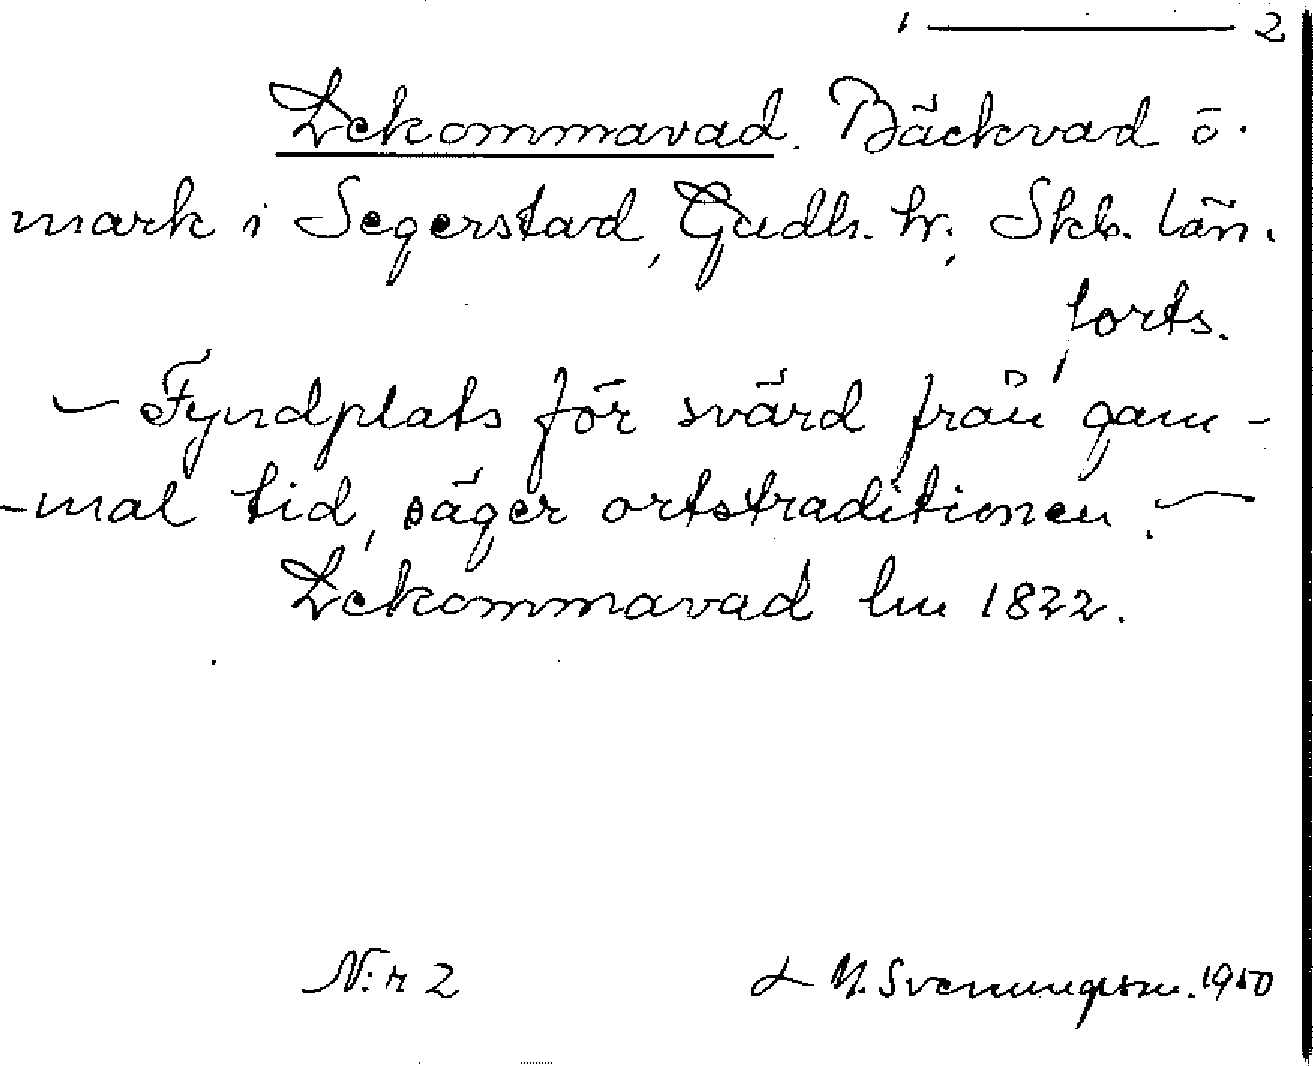 1 ——— 2
Lekommavad. Bäckvad ö.
mark i Segerstad, Gudh. hr., Skb. län.
forts.
— Fyndplats för svärd från gam-
-mal tid, säger ortstraditionen. —
Lekommavad lm 1822.
N:r 2
L M. Svenungsson. 1950